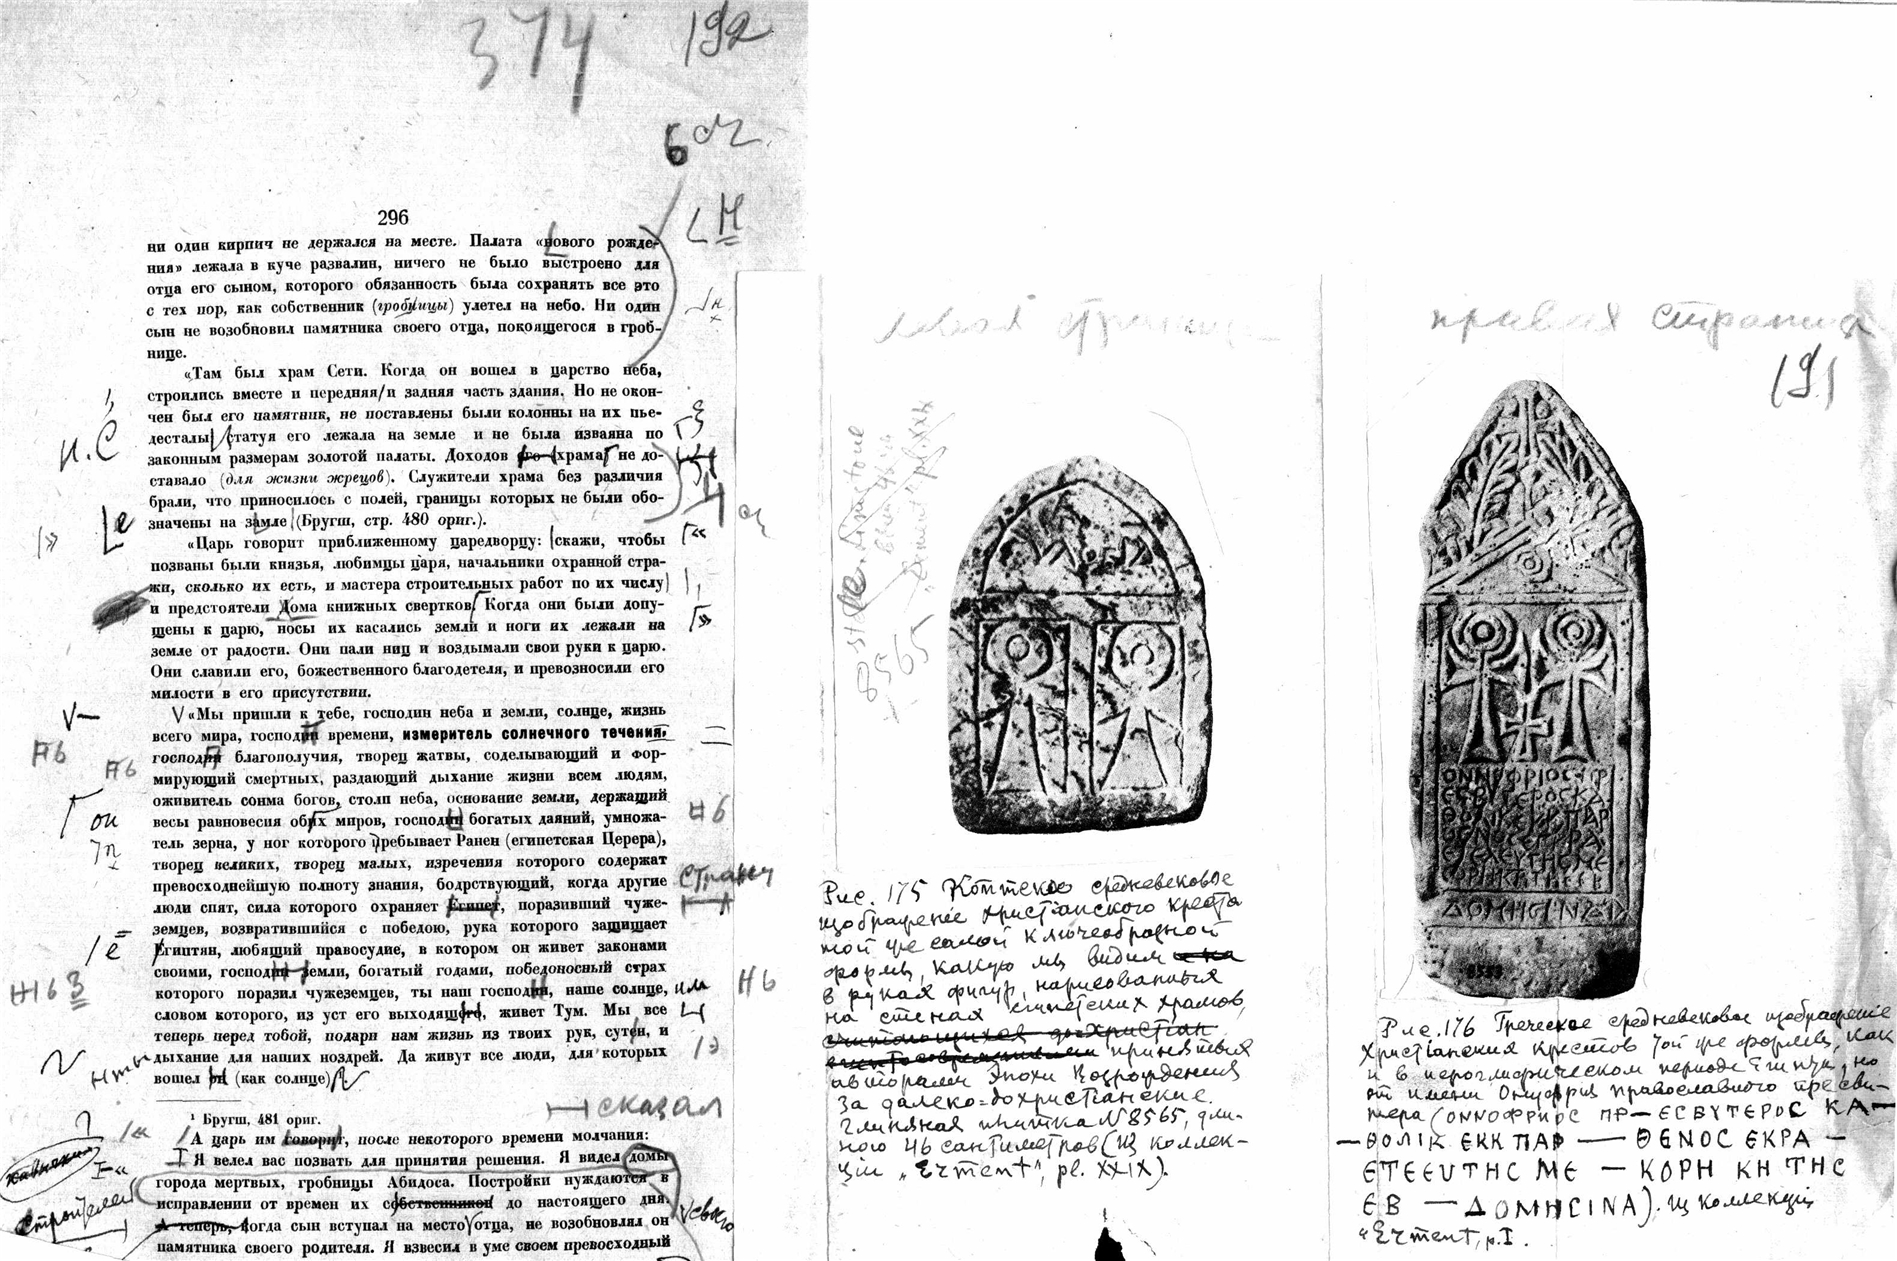 374
192
296
ни один кирпич не держался на месте. Палата «нового рожде-
ния» лежала в куче развалин, ничего не было выстроено для
отца его сыном, которого обязанность была сохранять все это
с тех пор, как собственник (гробницы) улетел на небо. Ни один
сын не возобновил памятника своего отца, покоящегося в гроб-
нице.
«Там был храм Сети. Когда он вошел в царство неба,
строились вместе и передняя/и задняя часть здания. Но не окон-
чен был его памятник, не поставлены были колонны на их пье-
десталы статуя его лежала на земле и не была изваяна по
законным размерам золотой палаты. Доходов его храма не до-
ставало (для жизни жрецов). Служители храма без различия
брали, что приносилось с полей, границы которых не были обо-
значены на замле (Бругш, стр. 480 ориг.).
«Царь говорит приближенному царедворцу: скажи, чтобы
позваны были князья, любимцы царя, начальники охранной стра-
жи, сколько их есть, и мастера строительных работ по их числу
и предстоятели Дома книжных свертков Когда они были допу-
щены к царю, носы их касались земли и ноги их лежали на
земле от радости. Они пали ниц и воздымали свои руки к царю.
Они славили его, божественного благодетеля, и превозносили его
милости в его присутствии.
«Мы пришли к тебе, господин неба и земли, солнце, жизнь
всего мира, господин времени, измеритель солнечного течения,
господин благополучия, творец жатвы, соделывающий и фор-
мирующий смертных, раздающий дыхание жизни всем людям,
оживитель сонма богов, столп неба, основание земли, держащий
весы равновесия обих миров, господин богатых даяний, умножа-
тель зерна, у ног которого пребывает Ранен (египетская Церера),
творец великих, творец малых, изречения которого содержат
превосходнейшую полноту знания, бодрствующий, когда другие
люди спят, сила которого охраняет Египет, поразивший чуже-
земцев, возвратившийся с победою, рука которого защищает
Египтян, любящий правосудие, в котором он живет законами
своими, господин земли, богатый годами, победоносный страх
которого поразил чужеземцев, ты наш господин, наше солнце,
словом которого, из уст его выходящего, живет Тум. Мы все
теперь перед тобой, подари нам жизнь из твоих рук, сутен, и
дыхание для наших ноздрей. Да живут все люди, для которых
вошел он (как солнце)
¹ Бругш, 481 ориг.
А царь им говорит, после некоторого времени молчания:
Я велел вас позвать для принятия решения. Я видел домы
города мертвых, гробницы Абидоса. Постройки нуждаются в
исправлении от времен их собственников до настоящего дня.
А теперь, когда сын вступал на место отца, не возобновлял он
памятника своего родителя. Я взвесил в уме своем превосходный
н.с
страну
сказал
строителей
левая страница
8565
Рис. 175 Коптское средневековое
изображение христианского креста
той же самой ключеобразной
формы, какую мы видим
в руках фигур, нарисованных
на стенах египетских храмов,
принятых
авторами Эпохи Возрождения
за далеко-дохристианские.
Глиняная плитка N 8565, дли-
ною 46 сантиметров (из коллек-
ции pl. XXIX).
правая страница
191
ΔΟΜΗCΙΝΑ
Рис. 176 Греческое средневековое изображение
христианских крестов той же формы, как
и в иероглифическом периоде Египта, но
от имени Онуфрия православного пресви-
тера (ОННОФРИОС ПР—ЕСВУТЕРОС КА—
—ΘОЛІК ЄКК ПАР — ΘЕNОС ЄКРА —
ЄТЕЄVТНС МЄ — КОРН КН ТНС
ЄВ — ΔОМНСІNА). Из коллекции
p. I.